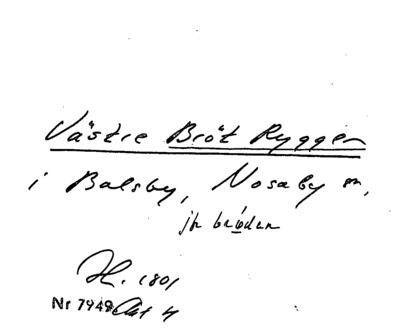 Västre Bröt Ryggen
i Balsby, Nosaby sn,
jfr
H. 1801
Nr 7948 Akt 4